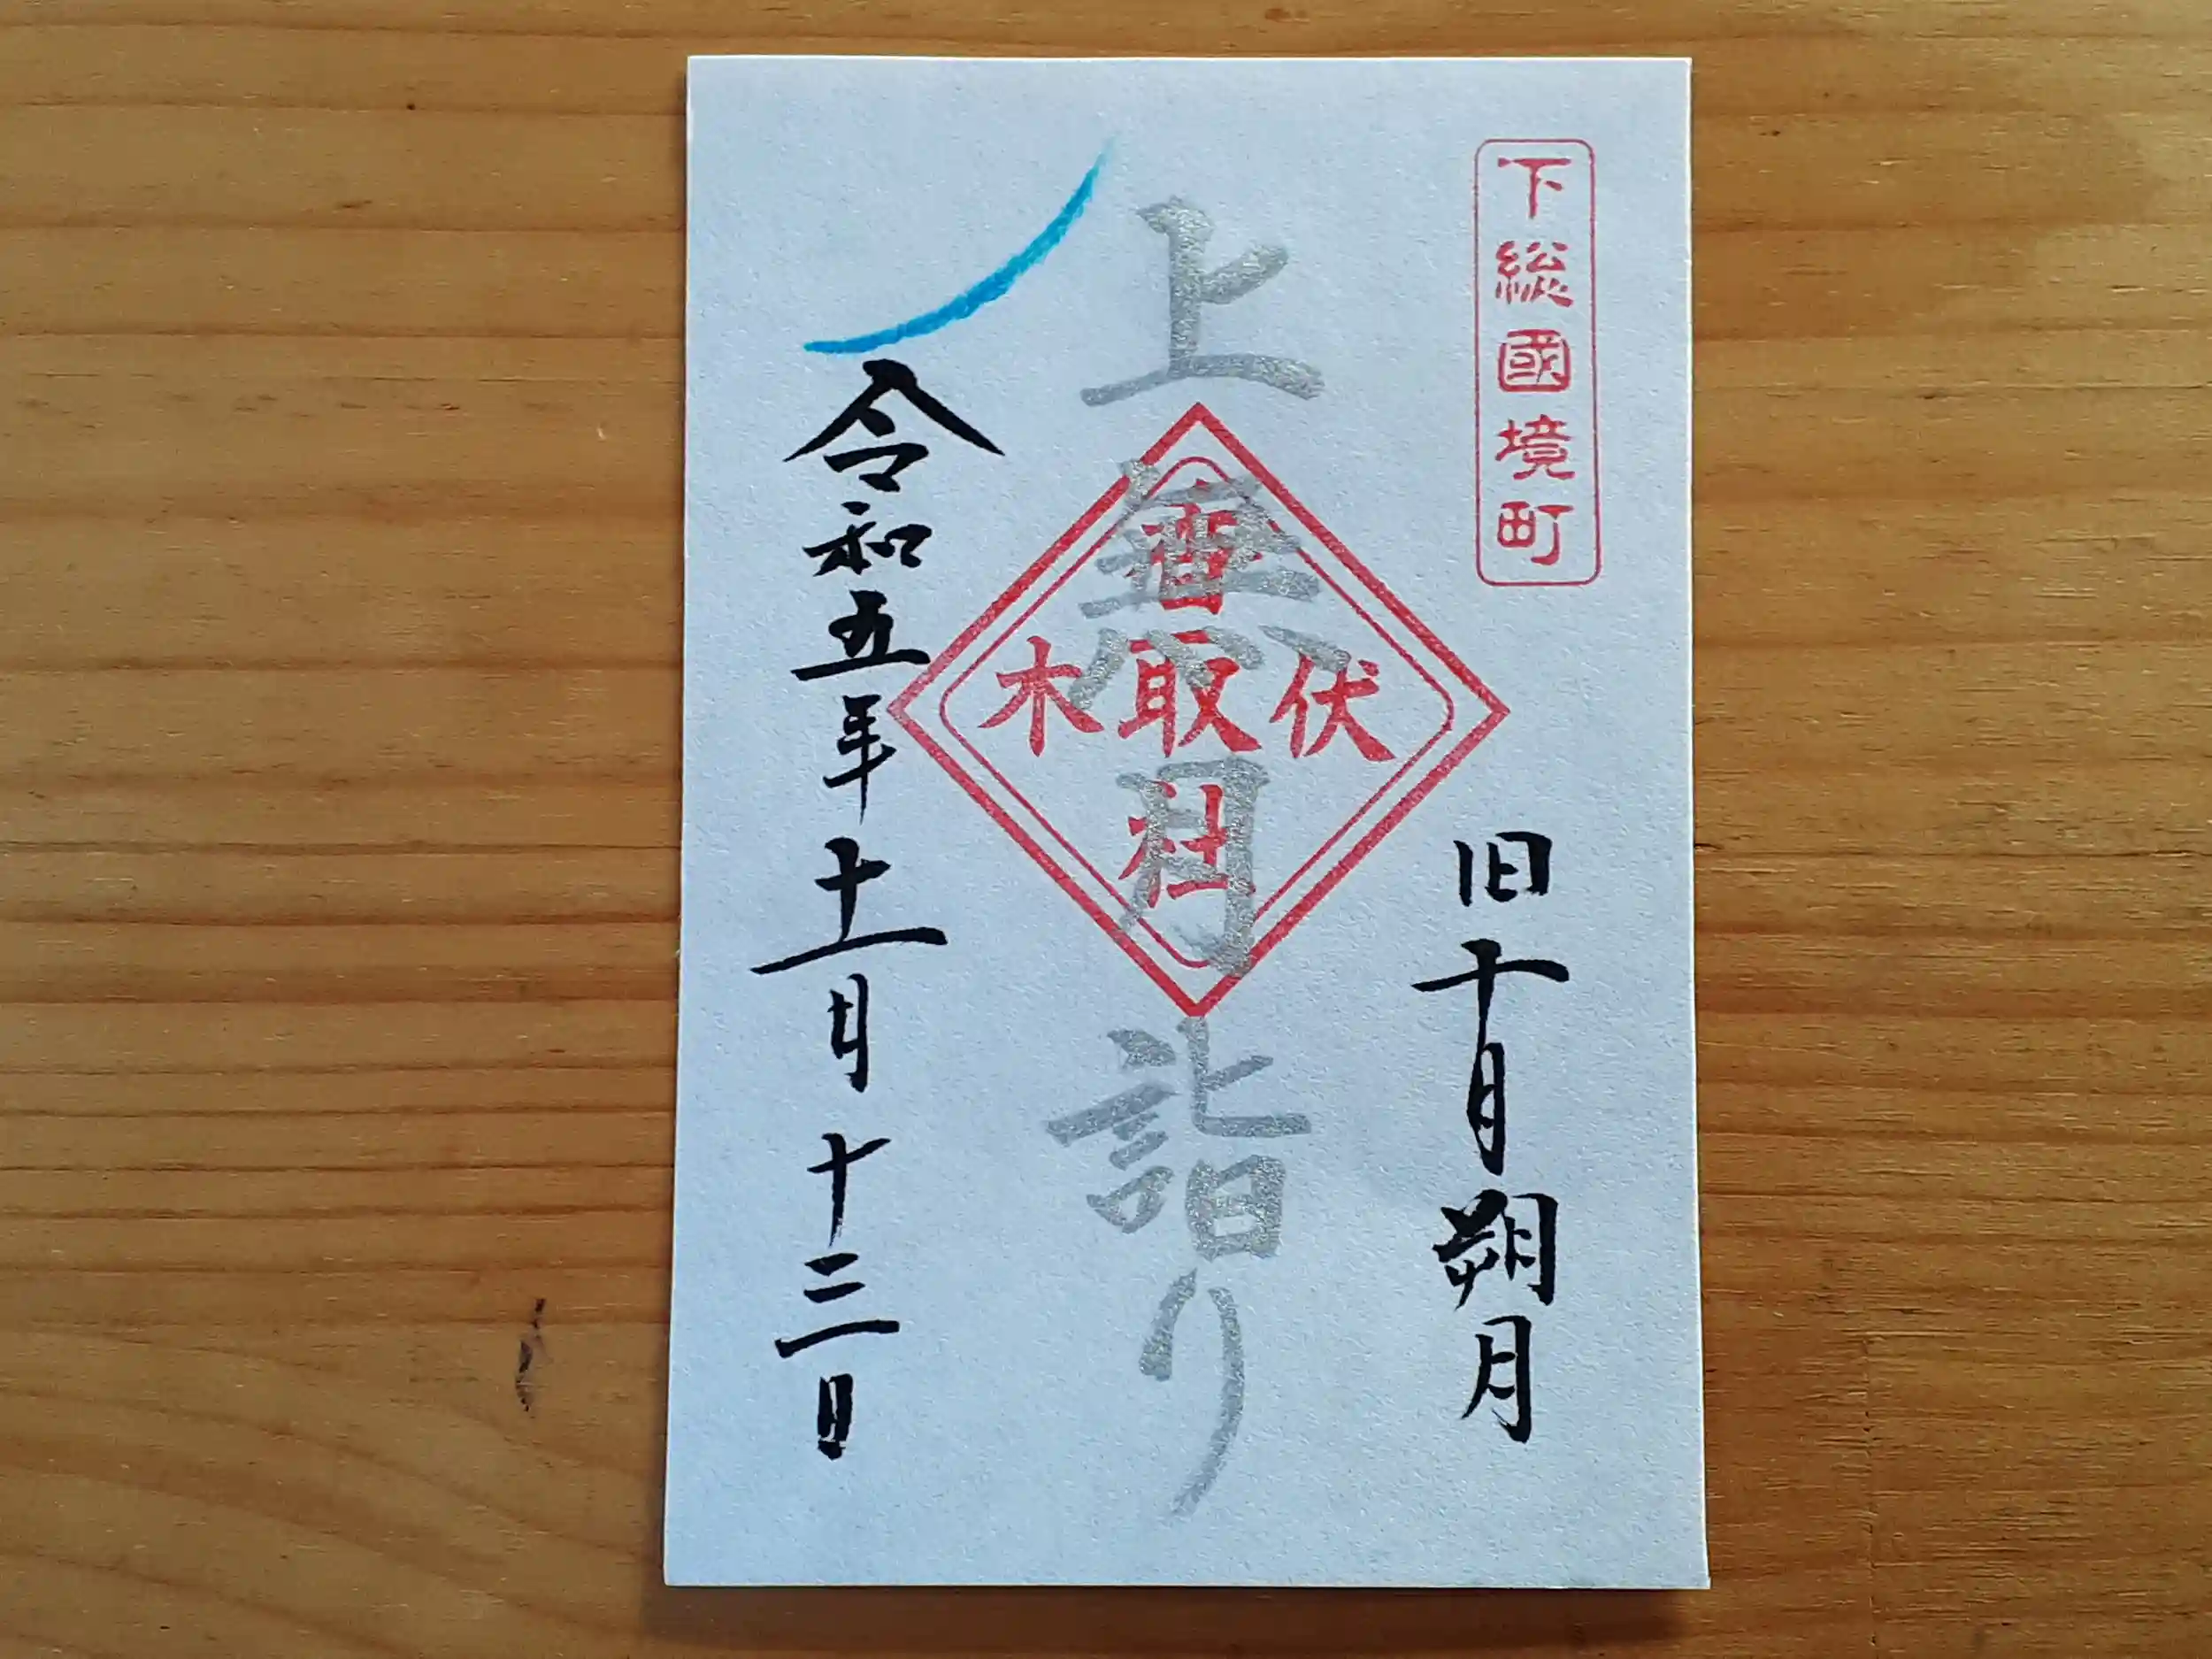 下総國境町
旧十月朔月
上無月詣り
香取社
伏木
令和五年十一月十三日